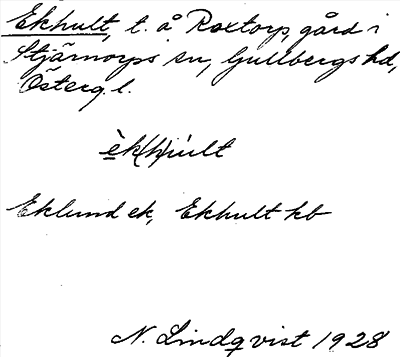 Ekhult, t. å Roxtorp, gård i
Stjärnorps sn, Gullbergs hd,
Österg. l.
èk(h)ùlt
Eklund ek, Ekhult kb
N. Lindqvist 1928